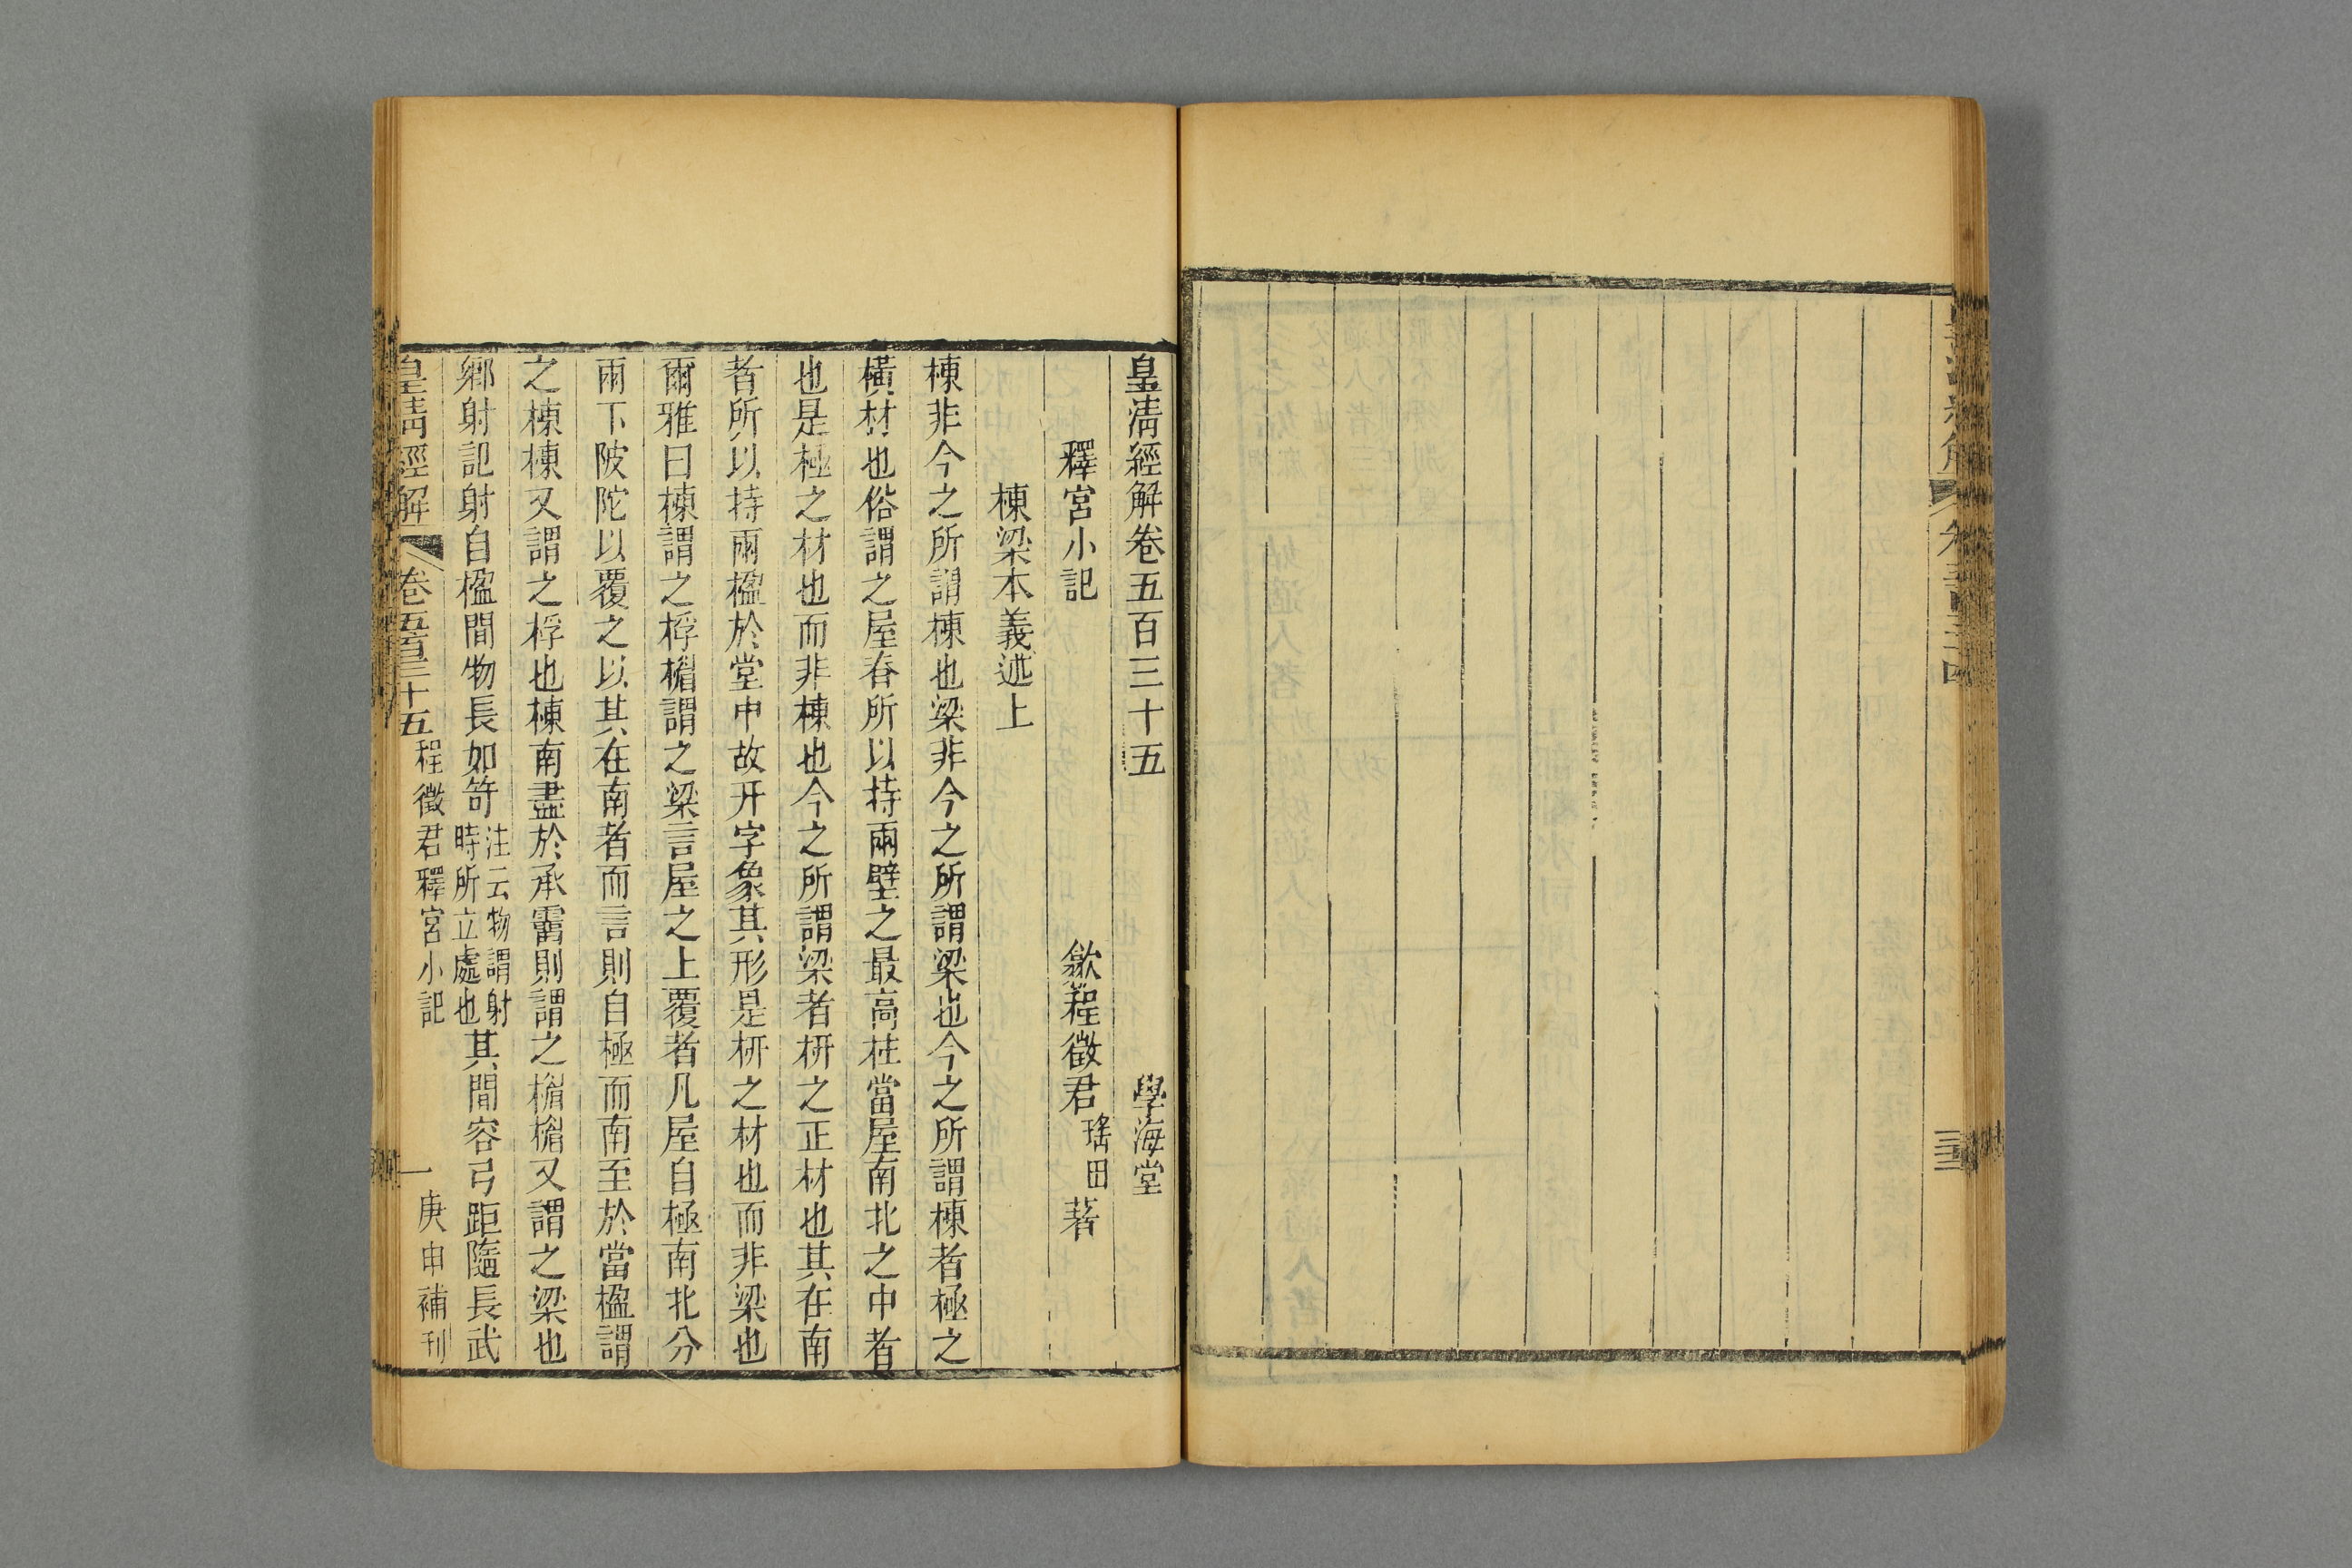 皇淸經解卷五百三十五
學海堂
釋宮小記
歙程徵君瑤田著
棟梁本義述上
棟非今之所謂棟也梁非今之所謂梁也今之所謂棟者極之
橫材也俗謂之屋春所以持兩壁之最高柱當屋南北之中者
也是極之材也而非棟也今之所謂梁者枅之正材也其在南
者所以持兩楹於堂中故开字象其形是枅之材也而非梁也
爾雅曰棟謂之桴楣謂之梁言屋之上覆者凡屋自極南北分
兩下陂陀以覆之以其在南者而言則自極而南至於當楹謂
之棟棟又謂之桴也棟南盡於承霤則謂之楣楣又謂之梁也
鄉射記射自楹間物長如笴注云物謂射時所立處也其間容弓距隨長武
皇淸經解
卷五百三十五
程徵君釋宮小記
一
庚申補刊